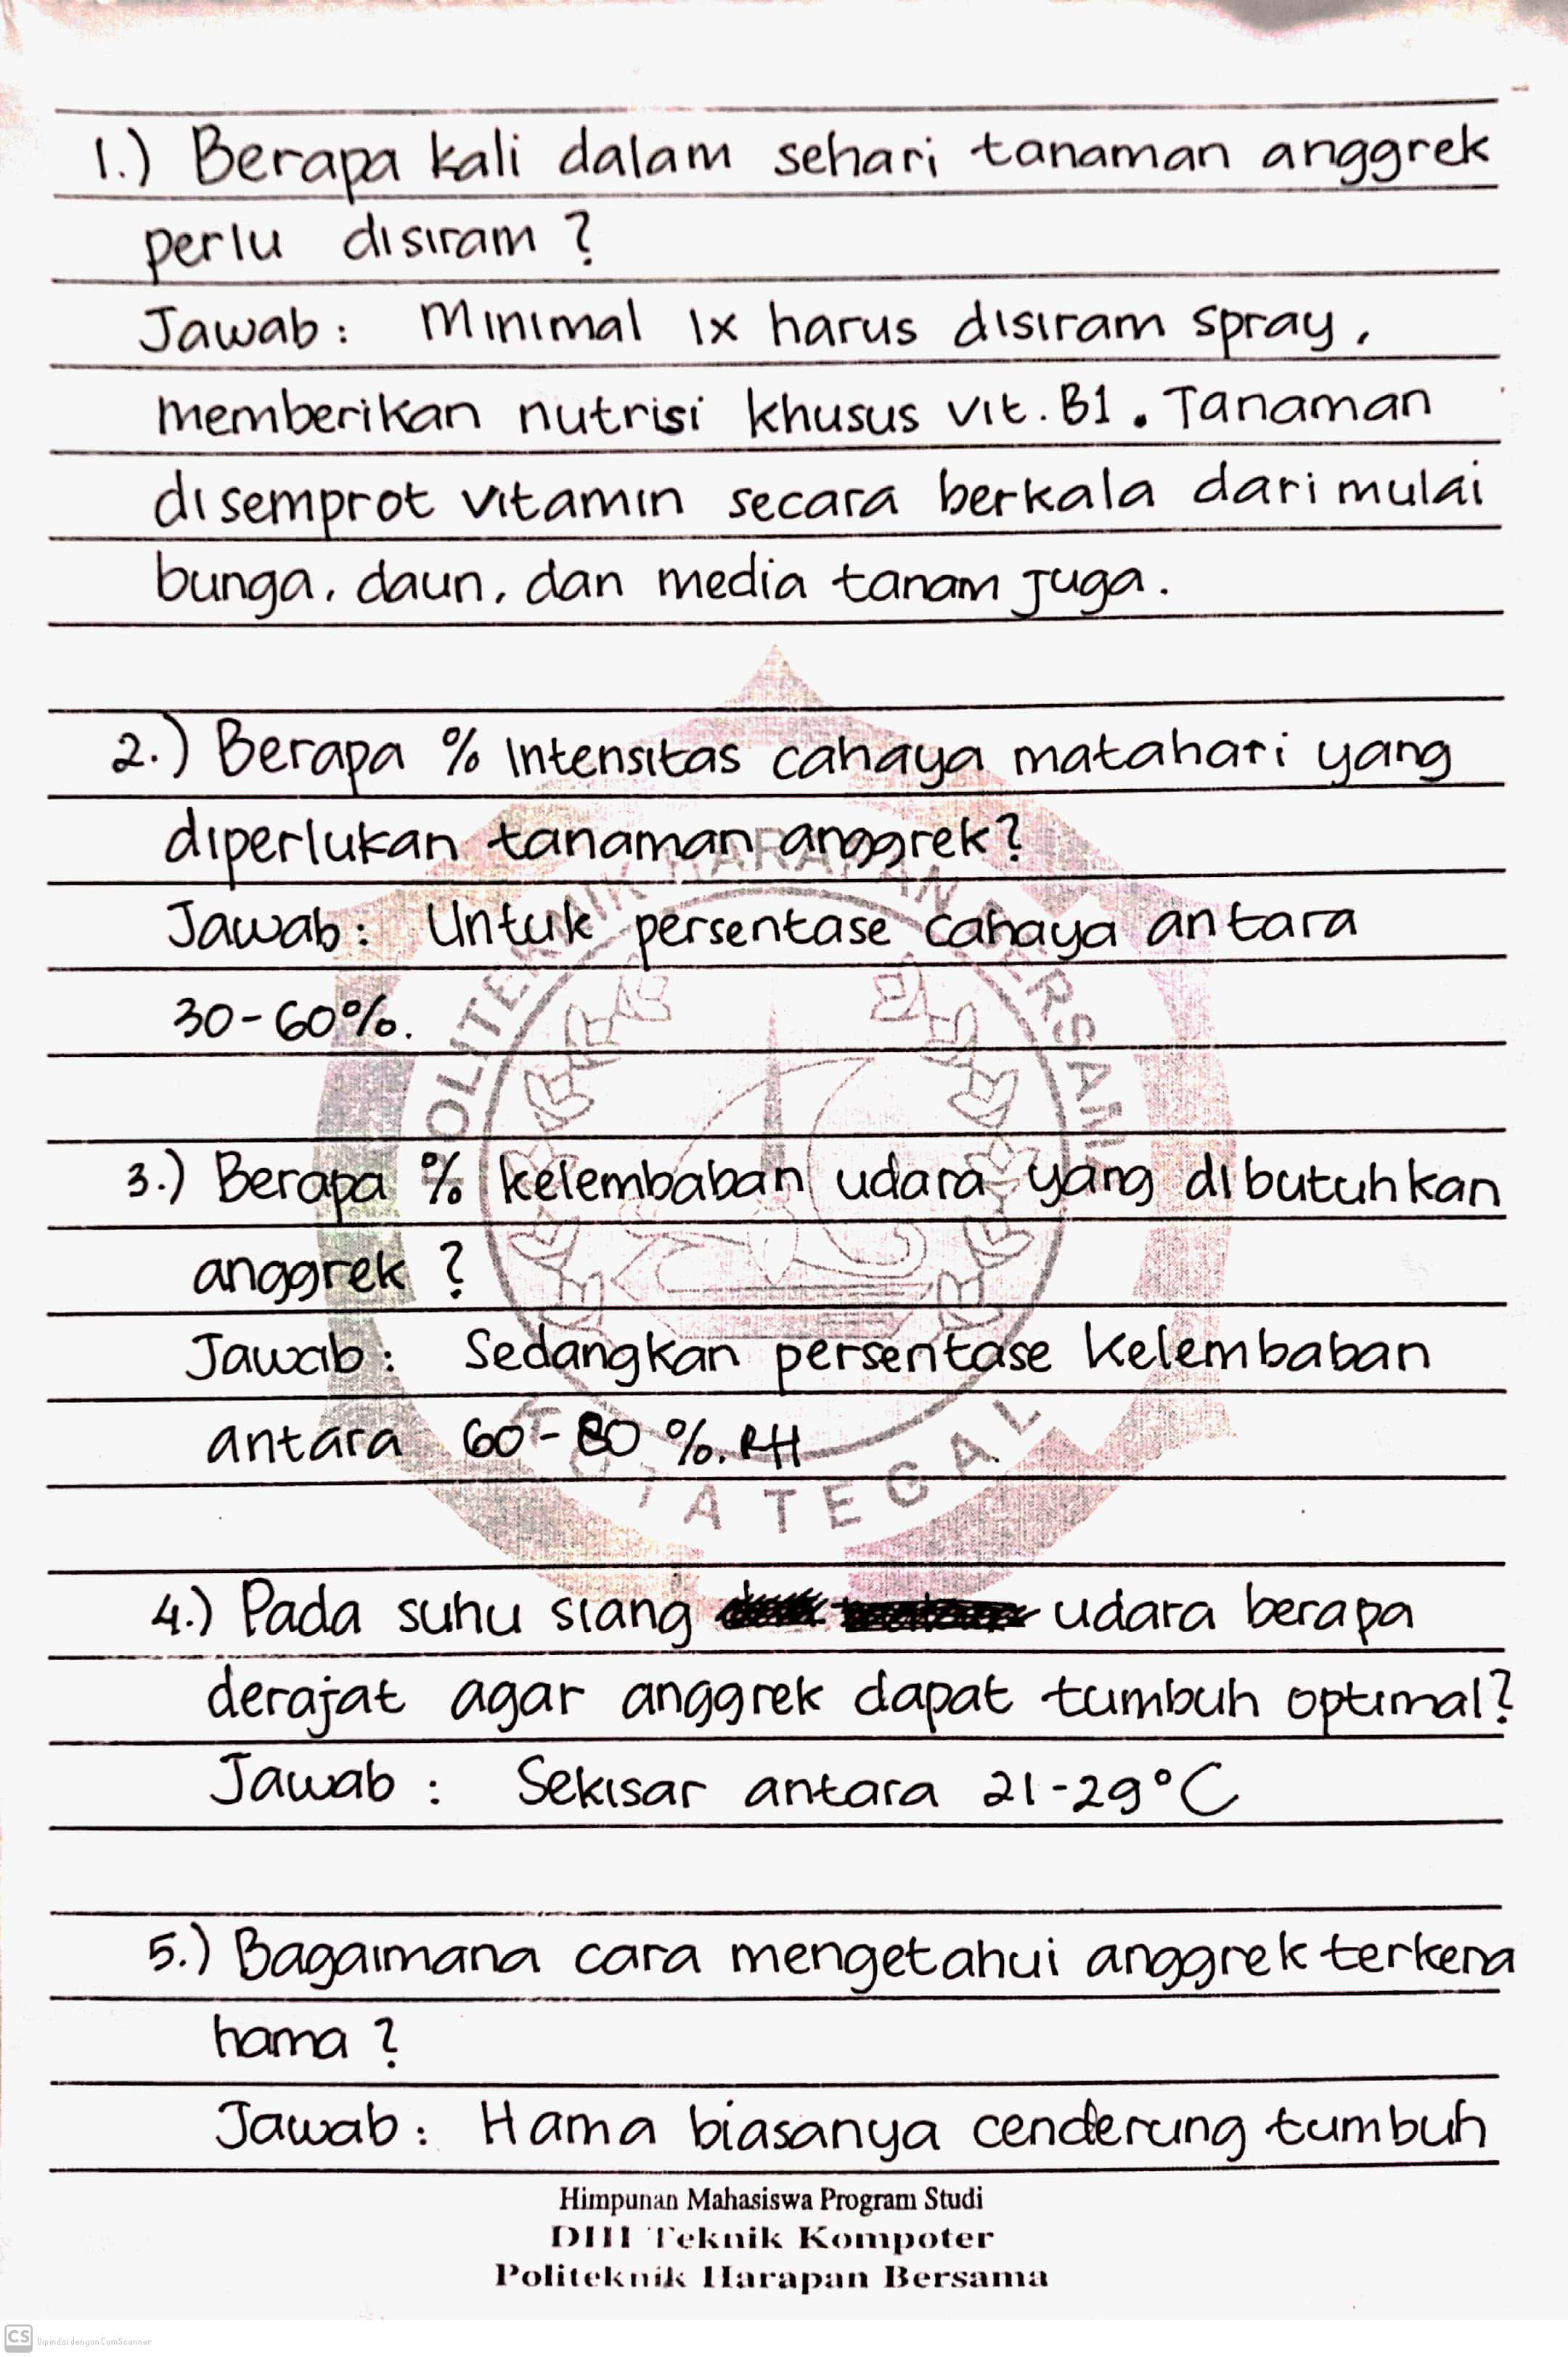 1.) Berapa kali dalam sehari tanaman anggrek
perlu disiram ?
Jawab : Minimal 1x harus disiram spray,
memberikan nutrisi khusus vit. B1. Tanaman
disemprot vitamin secara berkala dari mulai
bunga, daun, dan media tanam juga.
2.) Berapa % Intensitas cahaya matahari yang
diperlukan tanaman anggrek?
Jawab : Untuk persentase cahaya antara
30-60%.
3.) Berapa % kelembaban udara yang dibutuhkan
anggrek ?
Jawab : Sedangkan persentase kelembaban
antara 60-80 %. RH
4.) Pada suhu siang udara berapa
derajat agar anggrek dapat tumbuh optimal?
Jawab : Sekisar antara 21-29°C
5.) Bagaimana cara mengetahui anggrek terkena
hama ?
Jawab : Hama biasanya cenderung tumbuh
POLITEKNIK HARAPAN BERSAMA
KOTA TEGAL
Himpunan Mahasiswa Program Studi
DIII Teknik Kompoter
Politeknik Harapan Bersama
CS Dipindai dengan CamScanner